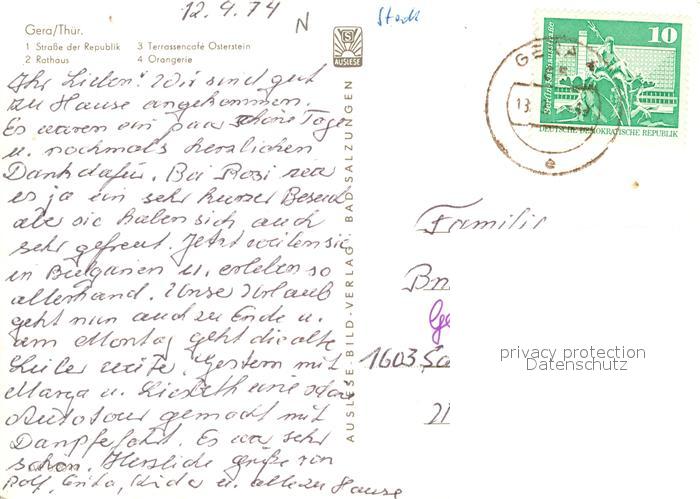 12.4.74
N
Stadt
Gera/Thür.
1 Straße der Republik 3 Terrassencafé Osterstein
2 Rathaus 4 Orangerie
AUSLESE
Ihr Lieben! Wir sind gut
zu Hause angekommen.
Es waren ein paar schöne Tage
u. nochmals herzlichen
Dank dafür. Bei Rosi war
es ja ein sehr kurzer Besuch
aber sie haben sich auch
sehr gefreut. Jetzt weilen sie
in Bulgarien u. erleben so
allerhand. Unser Urlaub
geht nun auch zu Ende u.
am Montag geht die alte
Leier weiter. Gestern mit
Marga u. Liesbeth eine
Autotour gemacht mit
Dampferfahrt. Es war sehr
schön. Herzliche Grüße von
Rolf, Erika, Kinder u. alle zu Hause
AUSLESE-BILD-VERLAG BAD SALZUNGEN
10
DEUTSCHE DEMOKRATISCHE REPUBLIK
GE
13.
e
Familie
1603
privacy protection
Datenschutz